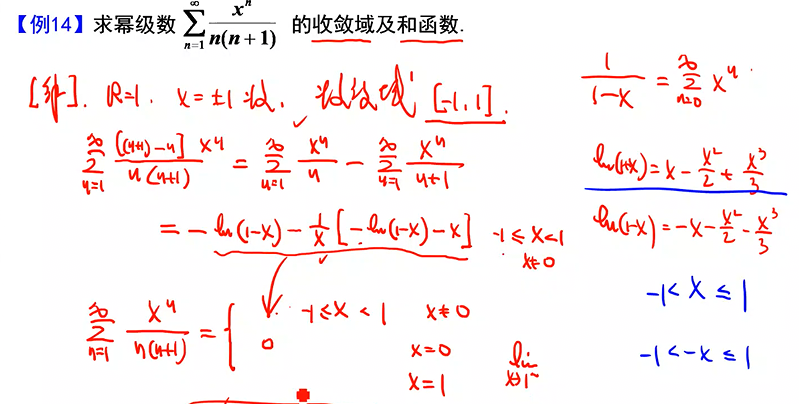 【例14】求幂级数 ∑_{n=1}^{∞} x^n/(n(n+1)) 的收敛域及和函数.
[解]. R=1. x=±1收敛, 收敛域 [-1,1].
∑_{n=1}^{∞} [(n+1)-n] x^n/(n(n+1)) = ∑_{n=1}^{∞} x^n/n - ∑_{n=1}^{∞} x^n/(n+1)
= -ln(1-x) - 1/x [-ln(1-x) - x] -1≤x<1
x≠0
∑_{n=1}^{∞} x^n/(n(n+1)) = { -1≤x<1 x≠0
0 x=0
x=1 lim_{x→1^-}
1/(1-x) = ∑_{n=0}^{∞} x^n
ln(1+x) = x - x^2/2 + x^3/3
ln(1-x) = -x - x^2/2 - x^3/3
-1<x≤1
-1<-x≤1